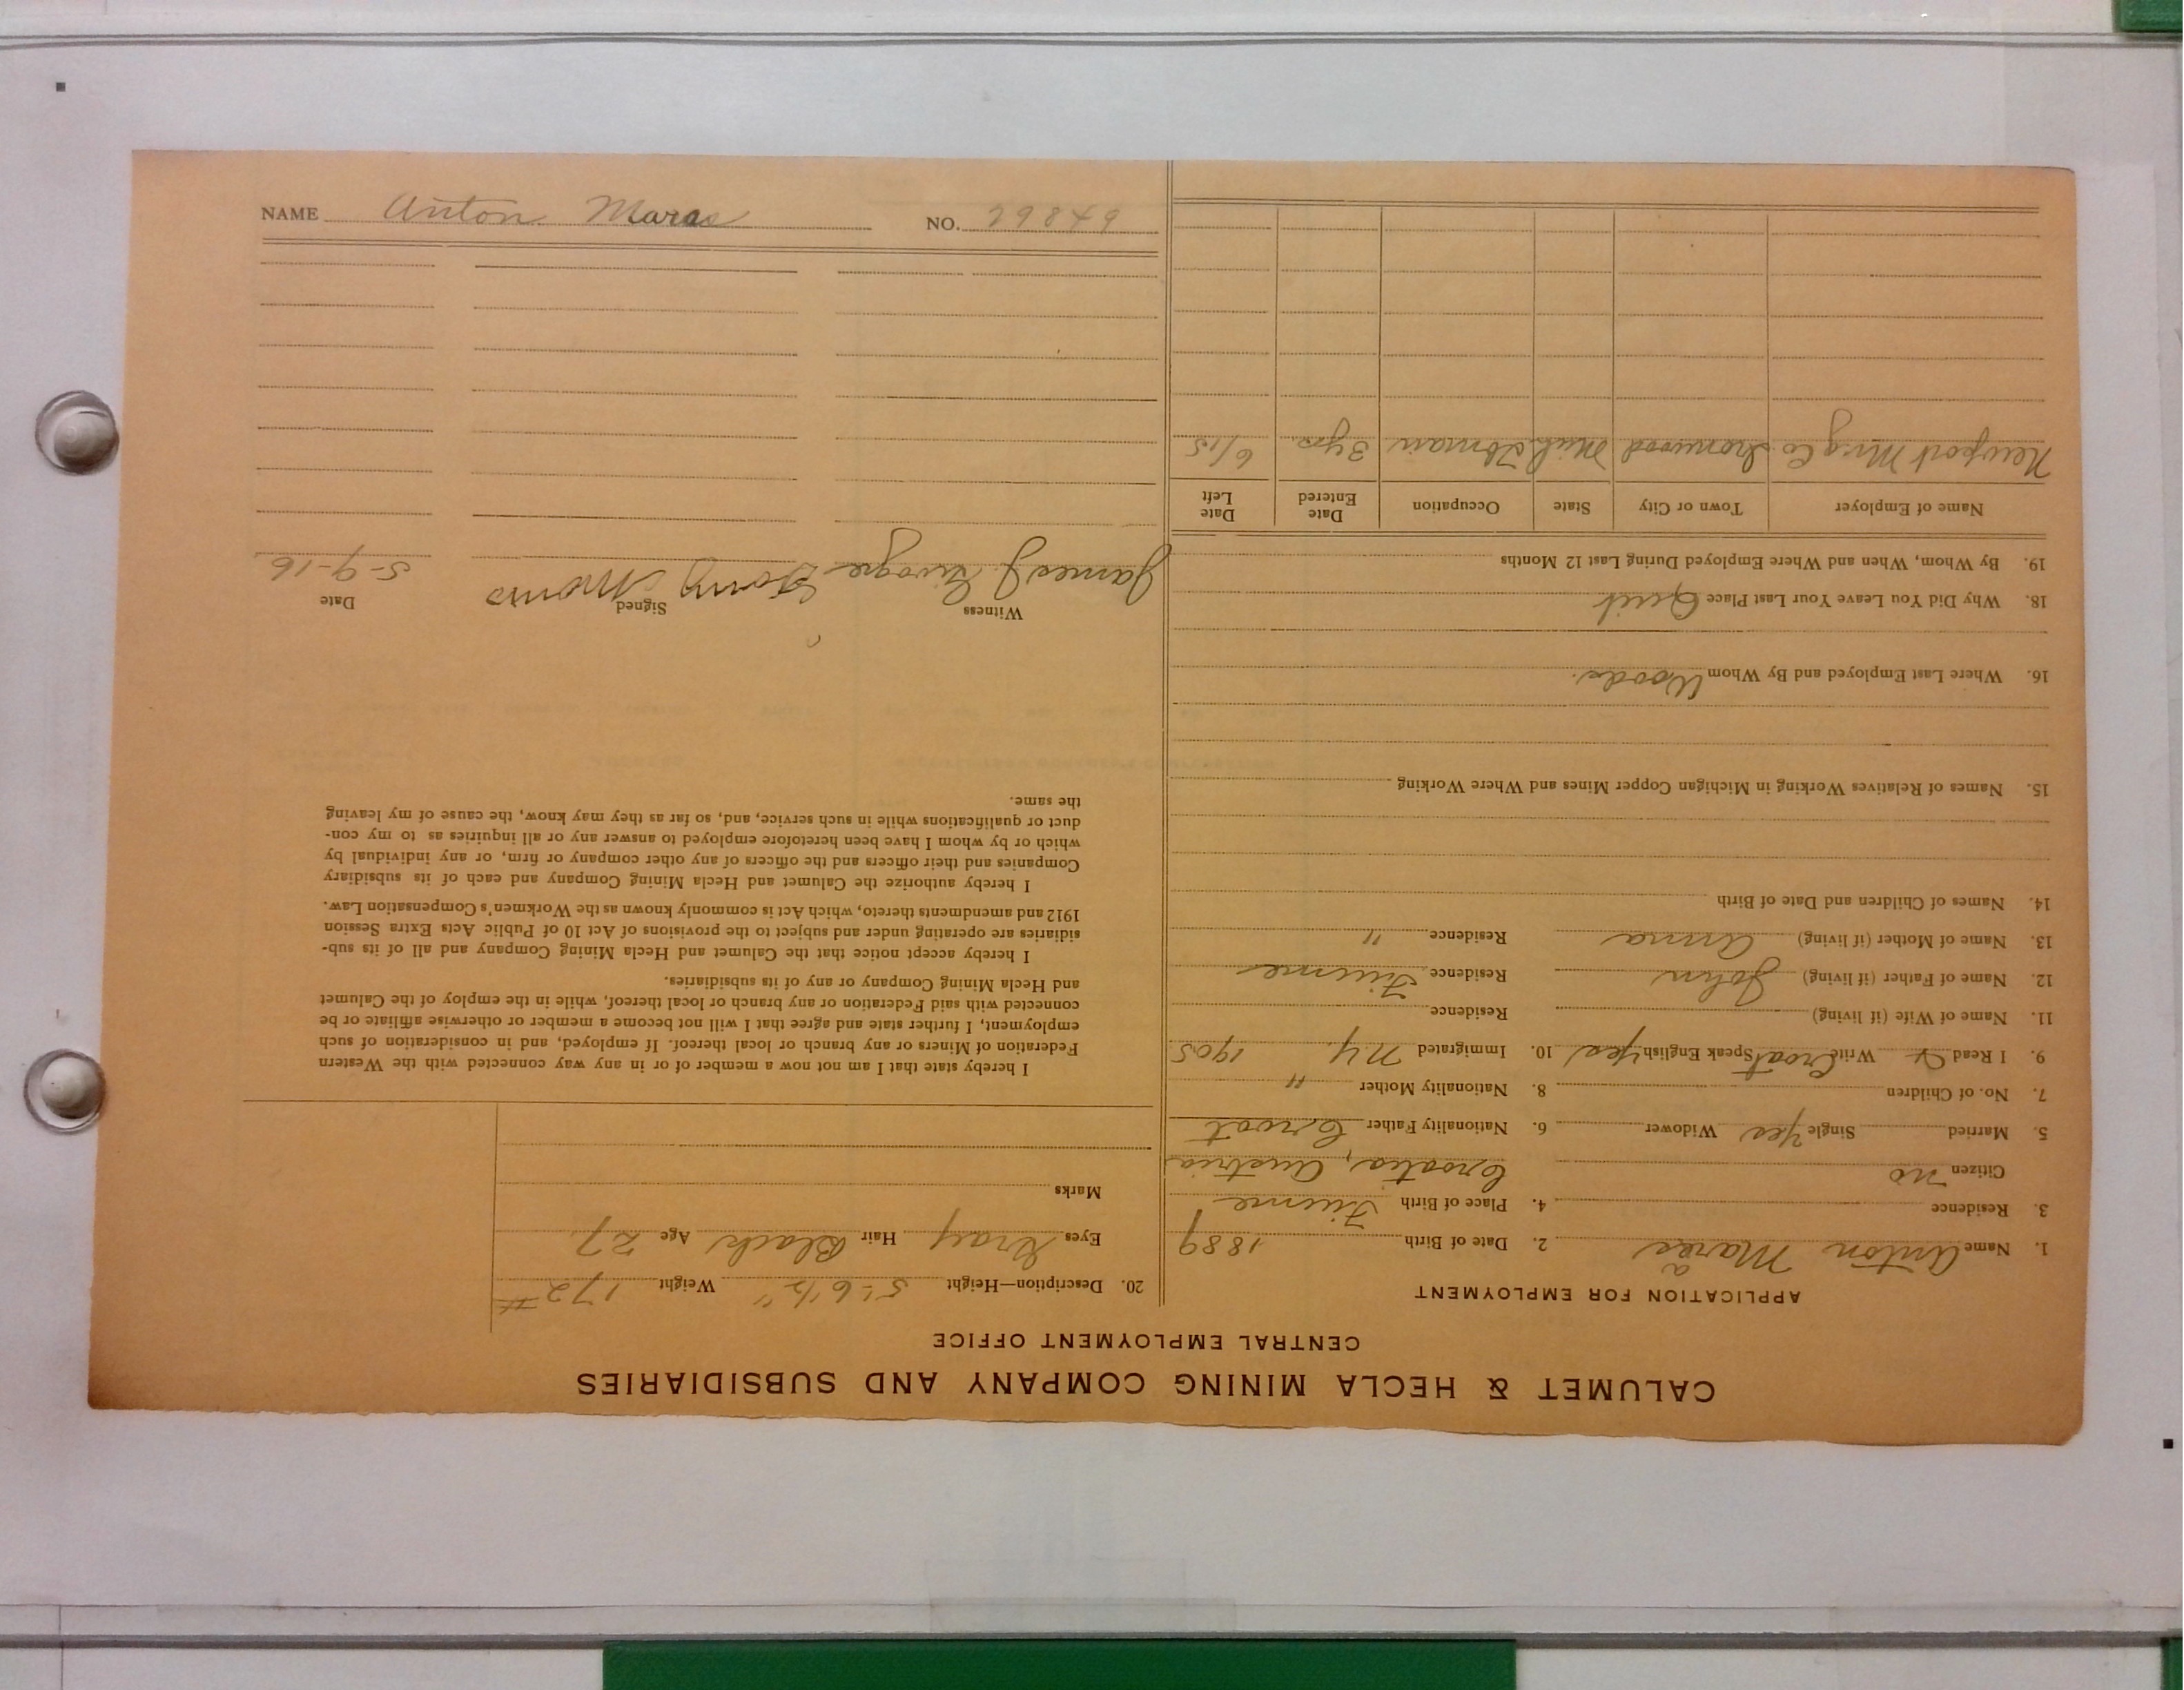 CALUMET & HECLA MINING COMPANY AND SUBSIDIARIES
CENTRAL EMPLOYMENT OFFICE
APPLICATION FOR EMPLOYMENT
1. Name Anton Maras 2. Date of Birth 1889
3. Residence 4. Place of Birth Fiume
Citizen no Croatia, Austria
5. Married Single Yes Widower 6. Nationality Father Croat
7. No. of Children 8. Nationality Mother "
9. I Read & Write Croat Speak English Yes 10. Immigrated N.Y. 1905
11. Name of Wife (if living) Residence
12. Name of Father (if living) John Residence Fiume
13. Name of Mother (if living) Anna Residence "
14. Names of Children and Date of Birth
15. Names of Relatives Working in Michigan Copper Mines and Where Working
16. Where Last Employed and By Whom Woods.
18. Why Did You Leave Your Last Place Quit
19. By Whom, When and Where Employed During Last 12 Months
Name of Employer Town or City State Occupation Date Entered Date Left
Newport Mng Co. Ironwood Mich. Trman 3 yrs. 6/15
20. Description—Height 5'-6 1/2" Weight 172 #
Eyes Gray Hair Black Age 27
Marks
I hereby state that I am not now a member of or in any way connected with the Western
Federation of Miners or any branch or local thereof. If employed, and in consideration of such
employment, I further state and agree that I will not become a member or otherwise affiliate or be
connected with said Federation or any branch or local thereof, while in the employ of the Calumet
and Hecla Mining Company or any of its subsidiaries.
I hereby accept notice that the Calumet and Hecla Mining Company and all of its sub-
sidiaries are operating under and subject to the provisions of Act 10 of Public Acts Extra Session
1912 and amendments thereto, which Act is commonly known as the Workmen's Compensation Law.
I hereby authorize the Calumet and Hecla Mining Company and each of its subsidiary
Companies and their officers and the officers of any other company or firm, or any individual by
which or by whom I have been heretofore employed to answer any or all inquiries as to my con-
duct or qualifications while in such service, and, so far as they may know, the cause of my leaving
the same.
Witness Signed Date
James J. Tony 5-9-16
NAME Anton Maras NO. 29849